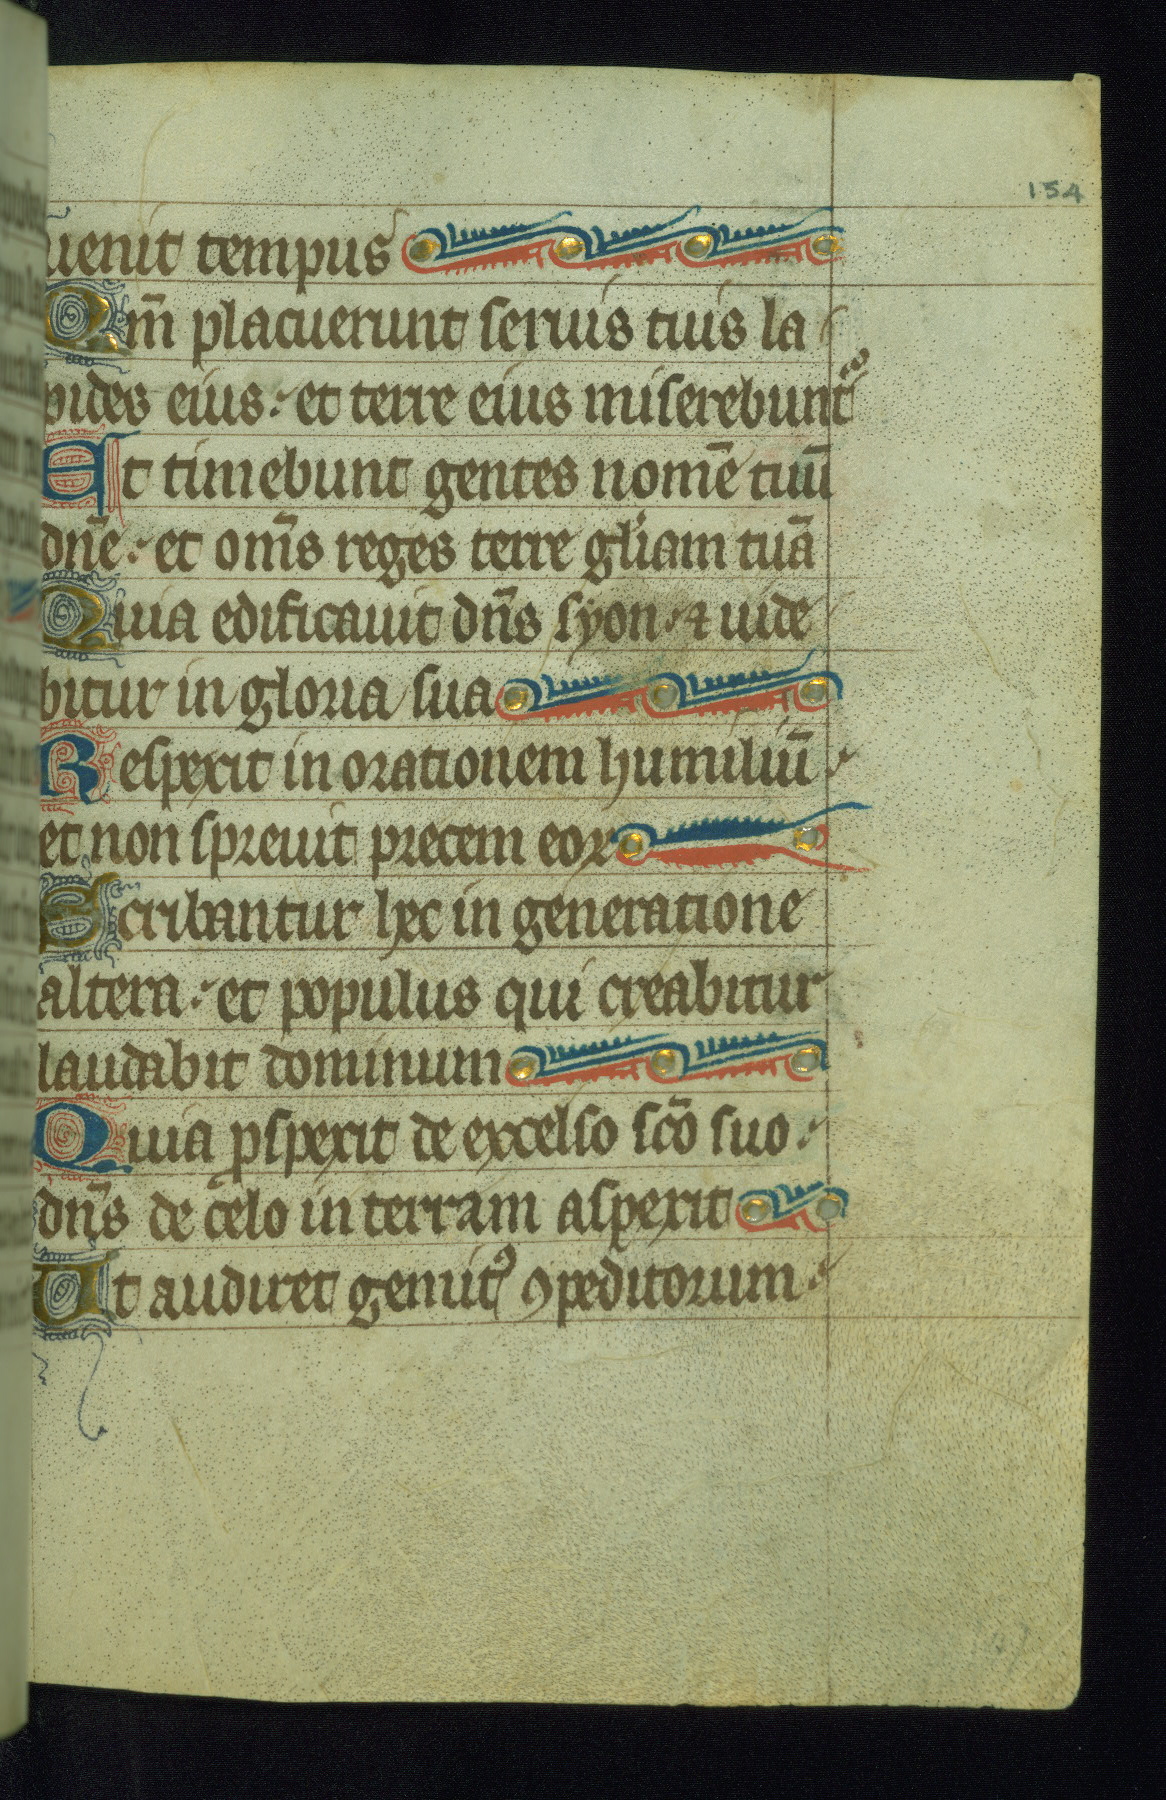 154
uenit tempus
Qm̄ placuerunt seruis tuis la
pides eius: et terre eius miserebunt᷑
Et timebunt gentes nomē tuū
dn̄e: et om̄s reges terre gl̄iam tuā
Quia edificauit dn̄s syon: ⁊ uide
bitur in gloria sua
Respexit in orationem humiliū:
et non spreuit precem eoꝝ
Scribantur hec in generatione
altera: et populus qui creabitur
laudabit dominum
Quia ꝓspexit de excelso sc̄o suo:
dn̄s de celo in terram aspexit
Ut audiret gemitꝰ ꝯpeditorum: